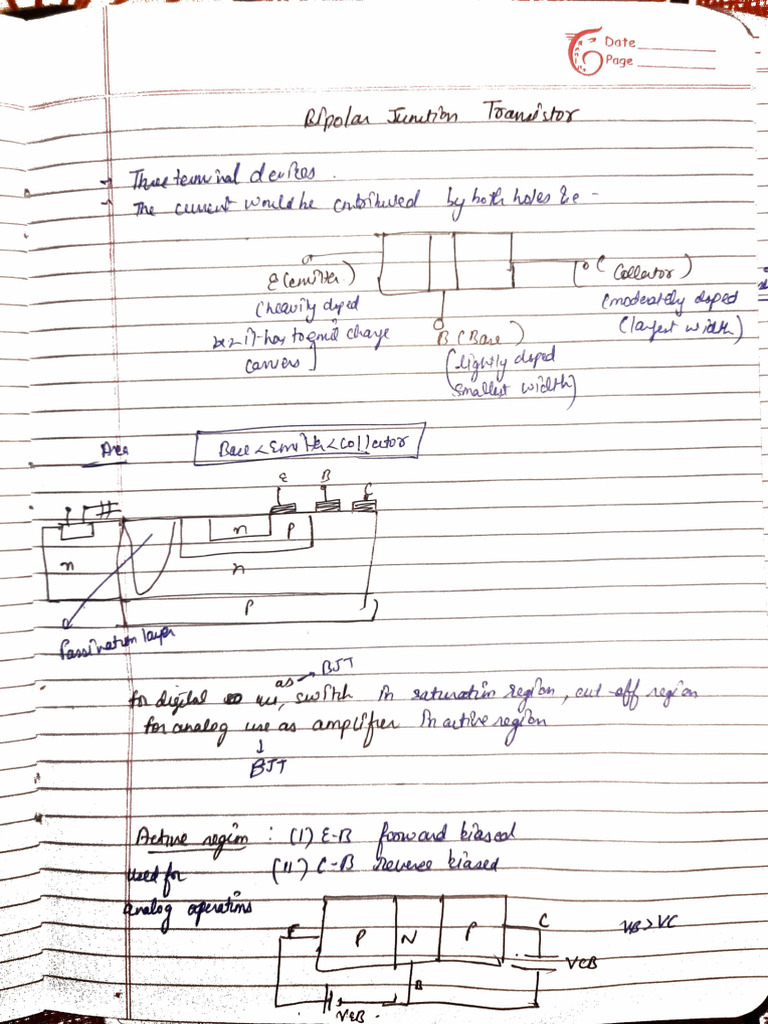 Date
Page
Bipolar Junction Transistor
→ Three terminal devices.
→ The current would be contributed by both holes & e-
E (emitter)
(heavily doped
it has to emit charge
carriers]
B (Base)
(lightly doped
smallest width)
C (Collector)
(moderately doped
(largest width)
Area
Base < Emitter < Collector
E B C
n P
n n
P
Passivation layer
as → BJT
for digital switch in saturation region, cut-off region
for analog use as amplifier in active region
↓
BJT
Active region : (I) E-B forward biased
used for (II) C-B reverse biased
analog operations
E P N P C VB > VC
VCB
B
VEB